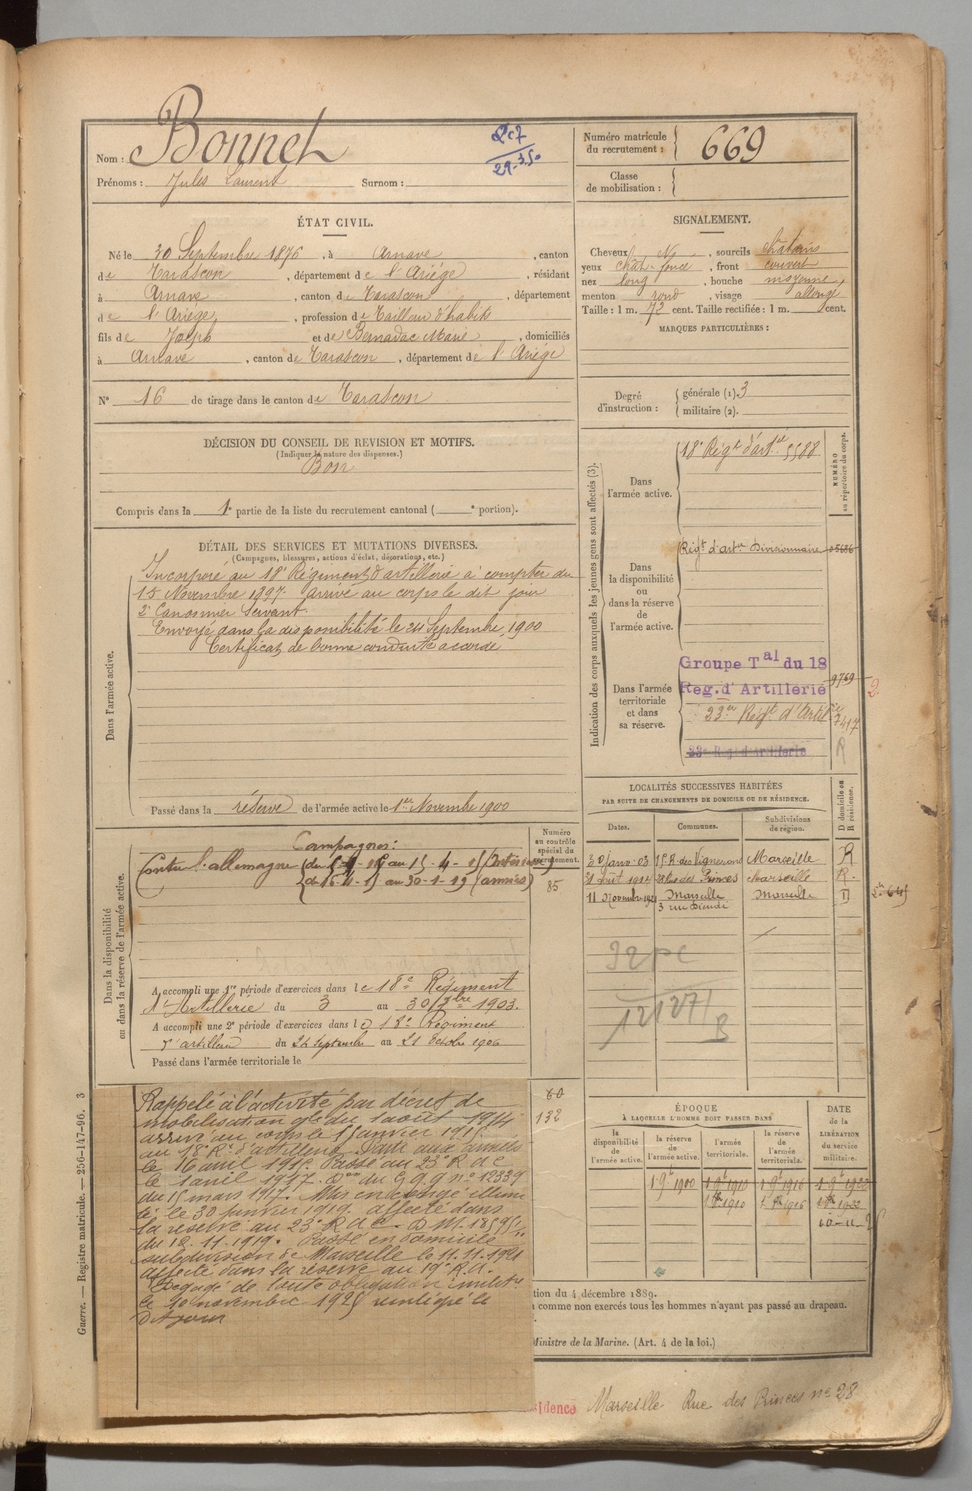 Nom : Bonnet
Prénoms : Jules Laurent Surnom :
29-3-50
Numéro matricule du recrutement : 669
Classe de mobilisation :
ÉTAT CIVIL.
Né le 30 Septembre 1876, à Arnave, canton
de Tarascon, département de l'Ariège, résidant
à Arnave, canton de Tarascon, département
de l'Ariège, profession de tailleur d'habits
fils de Joseph et de Bernadac Marie, domiciliés
à Arnave, canton de Tarascon, département de l'Ariège
N° 16 de tirage dans le canton de Tarascon
SIGNALEMENT.
Cheveux No, sourcils châtains
yeux chât. foncé, front couvert
nez long, bouche moyenne,
menton rond, visage allongé
Taille : 1 m. 72 cent. Taille rectifiée : 1 m. cent.
MARQUES PARTICULIÈRES :
Degré d'instruction : générale (1) 3
militaire (2).
DÉCISION DU CONSEIL DE REVISION ET MOTIFS.
(Indiquer la nature des dispenses.)
Bon
Compris dans la 1e partie de la liste du recrutement cantonal ( e portion).
DÉTAIL DES SERVICES ET MUTATIONS DIVERSES.
(Campagnes, blessures, actions d'éclat, décorations, etc.)
Dans l'armée active.
Incorporé au 18e Régiment d'artillerie à compter du
15 Novembre 1897. arrivé au corps le dit jour
2e Canonnier Servant.
Envoyé dans la disponibilité le 24 Septembre 1900
Certificat de bonne conduite accordé
Passé dans la réserve de l'armée active le 1er Novembre 1900
Indication des corps auxquels les jeunes gens sont affectés (3).
NUMÉRO au répertoire du corps.
Dans l'armée active.
18e Régt d'artie 5588
Dans la disponibilité ou dans la réserve de l'armée active.
Régt d'artie Divisionnaire
Dans l'armée territoriale et dans sa réserve.
Groupe Tal du 18
Reg. d'Artillerie 9769
23e Régt d'Artie 3417
R
2
LOCALITÉS SUCCESSIVES HABITÉES
PAR SUITE DE CHANGEMENTS DE DOMICILE OU DE RÉSIDENCE.
Dates. Communes. Subdivisions de région. D domicile ou R résidence.
30 janv. 03 15 R. des Vignerons Marseille R
31 août 1912 28 Rue des Princes Marseille R.
11 Novembre 1921 Marseille Marseille D
3 rue Dieudé
Dans la disponibilité ou dans la réserve de l'armée active.
Numéro au contrôle spécial du recrutement.
85
Campagnes :
Contre l'allemagne au 15-4-15 (Intérieur)
du 16-4-15 au 30-1-19 (armées)
A accompli une 1re période d'exercices dans le 18e Régiment
d'Artillerie du 3 au 30 1903.
A accompli une 2e période d'exercices dans le 18e Régiment
d'artillerie du 24 septembre au 21 octobre 1906
Passé dans l'armée territoriale le
60
132
Rappelé à l'activité par décret de
mobilisation gle du 1 août 1914
arrivé au corps le 15 janvier 1915
au 18e R. d'artillerie. Parti aux armées
le 16 avril 1915. Passé au 23e R A C
le 1 avril 1917. Don du G.Q.G n° 12339
du 15 mars 1917. Mis en congé illimi
té le 30 janvier 1919. affecté dans
la réserve au 23e R.A.C. D.M. 18595
du 12.11.1919. Passé en domicile
subdivision de Marseille le 11.11.1921
affecté dans la réserve au 19e R.A.
Dégagé de toute obligation militre
le 10 novembre 1925
ÉPOQUE
À LAQUELLE L'HOMME DOIT PASSER DANS
la disponibilité de l'armée active. la réserve de l'armée active. l'armée territoriale. la réserve de l'armée territoriale.
DATE de la LIBÉRATION du service militaire.
1 9b 1900 1 9b 1910 1 9b 1916 1 9b 1922
tion du 4 décembre 1889.
comme non exercés tous les hommes n'ayant pas passé au drapeau.
Ministre de la Marine. (Art. 4 de la loi.)
sidence Marseille Rue des Princes n° 28
Guerre. — Registre matricule. — 256-147-96. 3